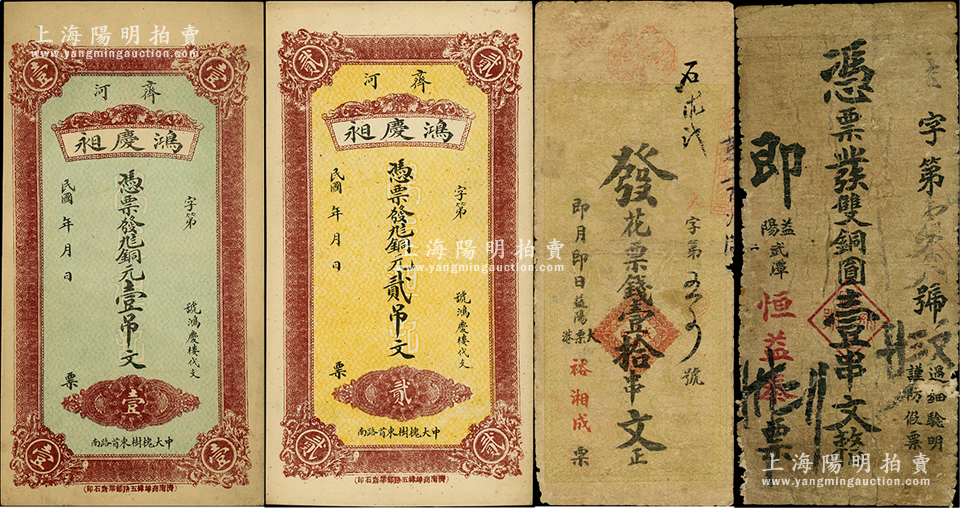 上海陽明拍賣
www.yangmingauction.com
壹
壹
齊河
鴻慶昶
字第
號鴻慶樓代支
憑票發九八銅元壹吊文
民國 年 月 日
票
壹
中大槐樹東首路南
壹
壹
上海陽明拍賣
www.yangmingauction.com
貳
貳
齊河
鴻慶昶
字第
號鴻慶樓代支
憑票發九八銅元貳吊文
民國 年 月 日
票
貳
中大槐樹東首路南
貳
貳
字第
號
發花票錢壹拾串文正
即月即日益陽大票港
裕湘成
票
字第
號
過細驗明
謹防假票
憑票發雙銅圓壹串文整
即
益陽武潭
恒益泰
票
上海陽明拍賣
www.yangmingauction.com
上海陽明拍賣
www.yangmingauction.com